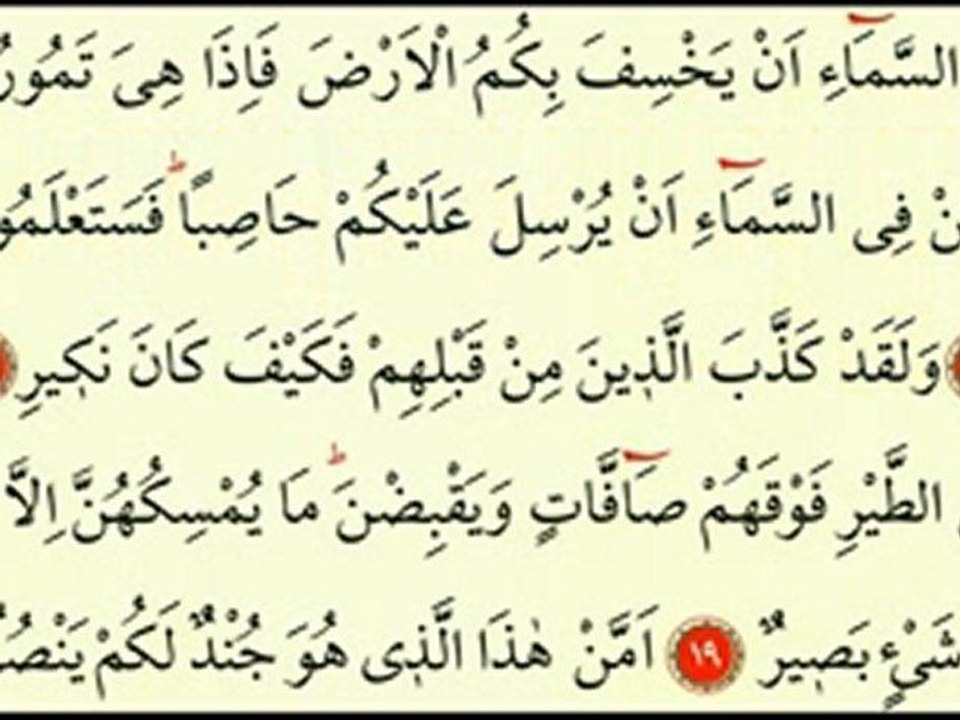 السَّمَاءِ اَنْ يَخْسِفَ بِكُمُ الْاَرْضَ فَاِذَا هِىَ تَمُورُ
فِى السَّمَاءِ اَنْ يُرْسِلَ عَلَيْكُمْ حَاصِبًا فَسَتَعْلَمُو
وَلَقَدْ كَذَّبَ الَّذ۪ينَ مِنْ قَبْلِهِمْ فَكَيْفَ كَانَ نَك۪يرِ
الطَّيْرِ فَوْقَهُمْ صَافَّاتٍ وَيَقْبِضْنَ مَا يُمْسِكُهُنَّ اِلَّا
شَىْءٍ بَص۪يرٌ ١٩ اَمَّنْ هٰذَا الَّذ۪ى هُوَ جُنْدٌ لَكُمْ يَنْصُ